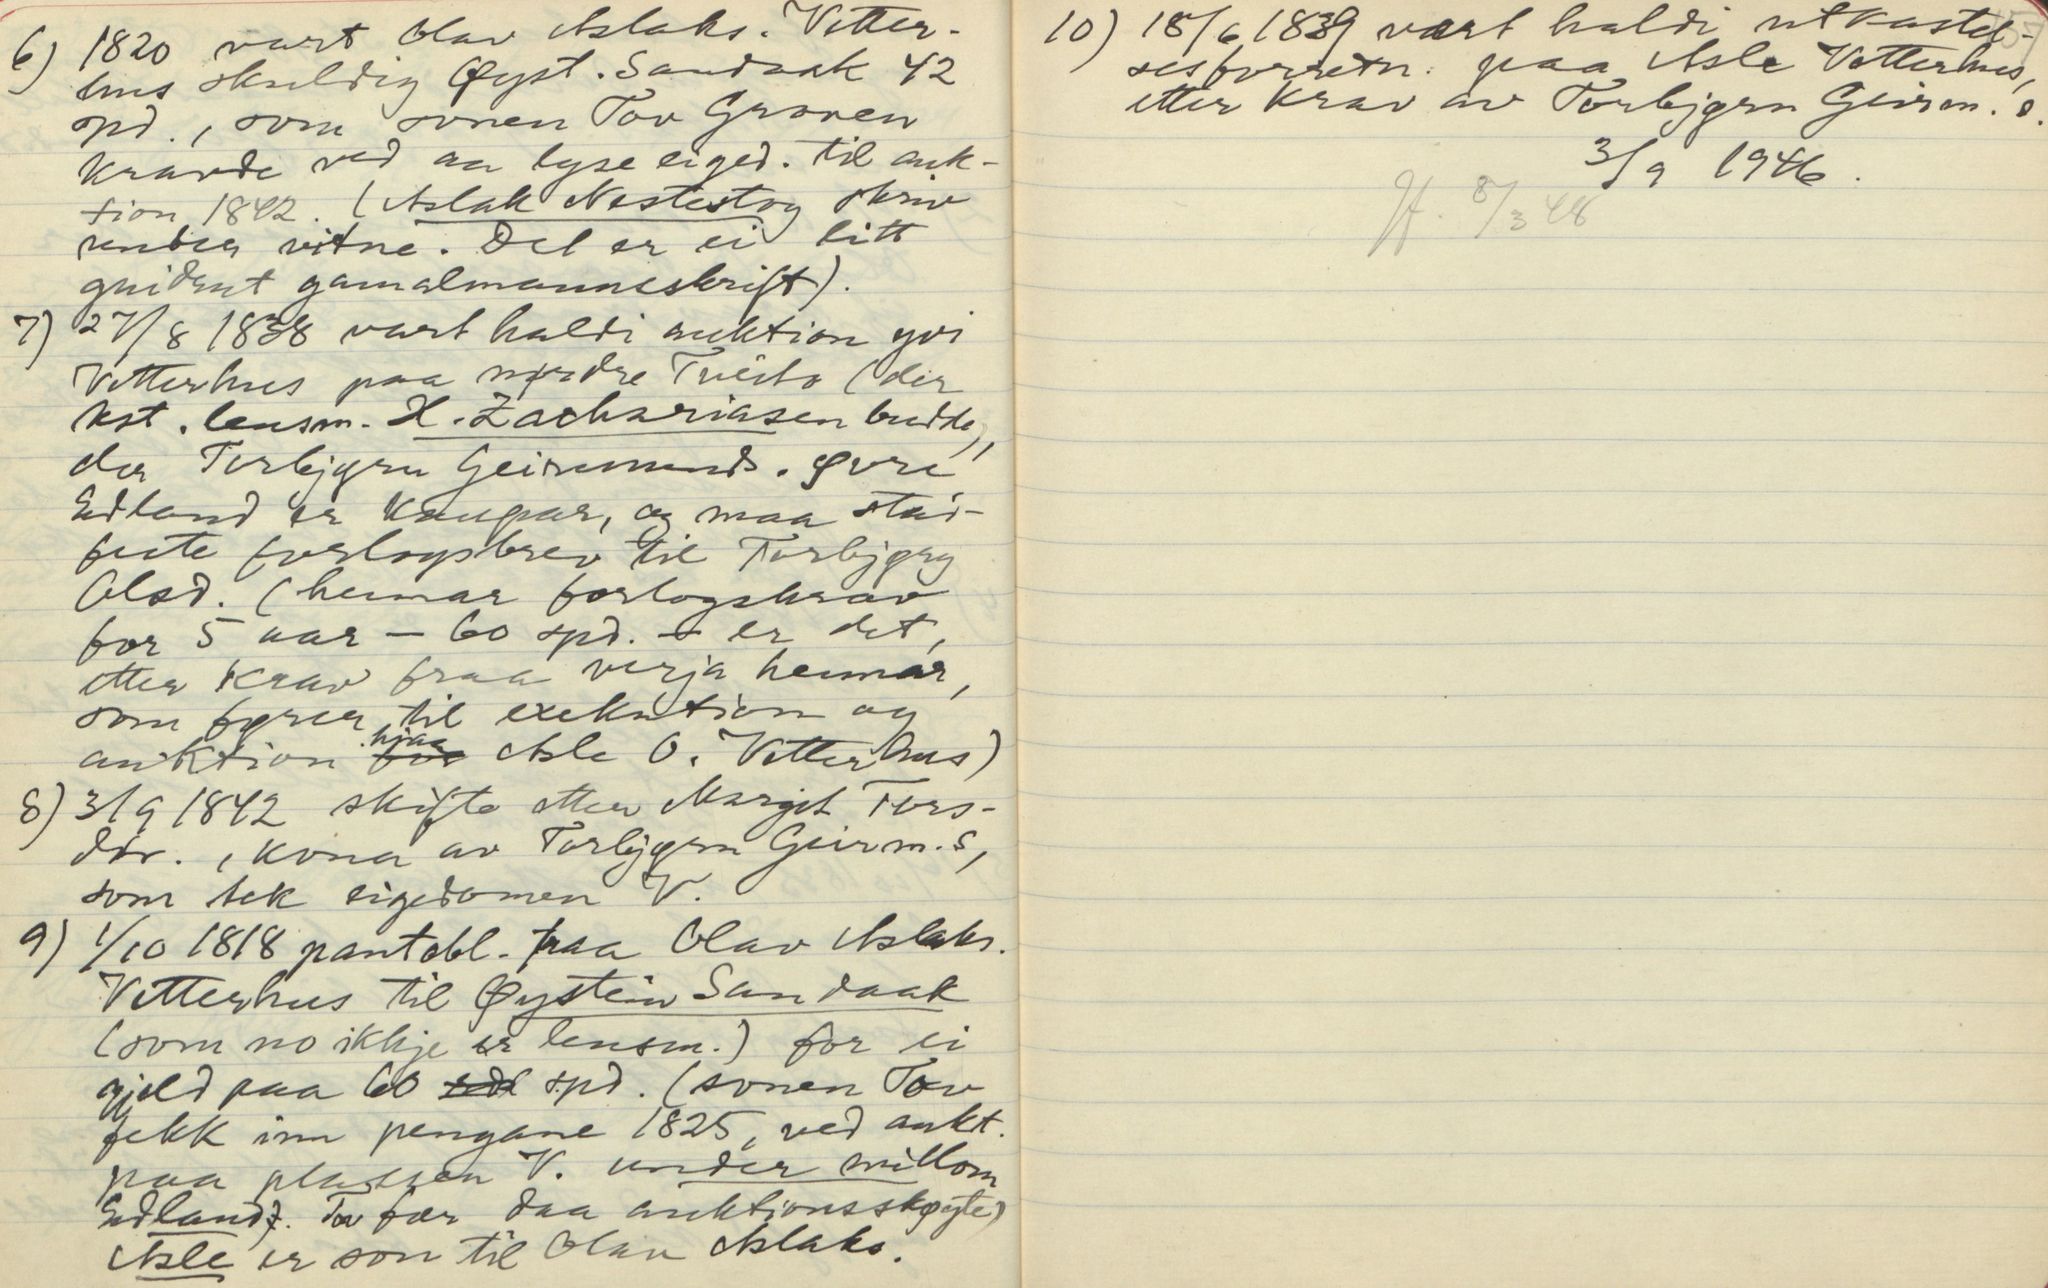 6) 1820 vart Olav Aslaks. Vetter-
hus skuldig Øyst. Sandaak 42
spd., som sonen Tov Groven
kravde ved aa lyse eiged. til auk-
tion 1842. (Aslak Nestestog skriv
under vitne. Det er ei litt
gnidrut gamalmannsskrift).
7) 27/8 1838 vart haldi auktion yvi
Vetterhus paa nørdre Tveito (der
kst. lensm. H. Zachariasen budde),
der Torbjørn Geirmunds. Øvre
Edland er kaupar, og maa stad-
feste forlogsbrev til Torbjørg
Olsd. (hennar forlogskrav
for 5 aar – 60 spd. – er det,
etter krav fraa verja hennar,
som fører til exekution og
auktion hjaa Asle O. Vetterhus)
8) 3/9 1842 skifte etter Margit Tors-
dtr., kona av Torbjørn Geirm. s,
som tek eigedomen V.
9) 1/10 1818 pantobl. fraa Olav Aslaks.
Vetterhus til Øystein Sandaak
(som no ikkje er lensm.) for ei
gjeld paa 60 spd. (sonen Tov
fekk inn pengane 1825, ved aukt.
paa plassen V. under millom
Edland). Tov fær daa auktionsskøyte)
Asle er son til Olav Aslaks.
10) 18/6 1839 vart haldi utkastel-
sesforretn. paa Asle Vetterhus,
etter krav av Torbjørn Geirm. s.
3/9 1946.
H. 8/3 48